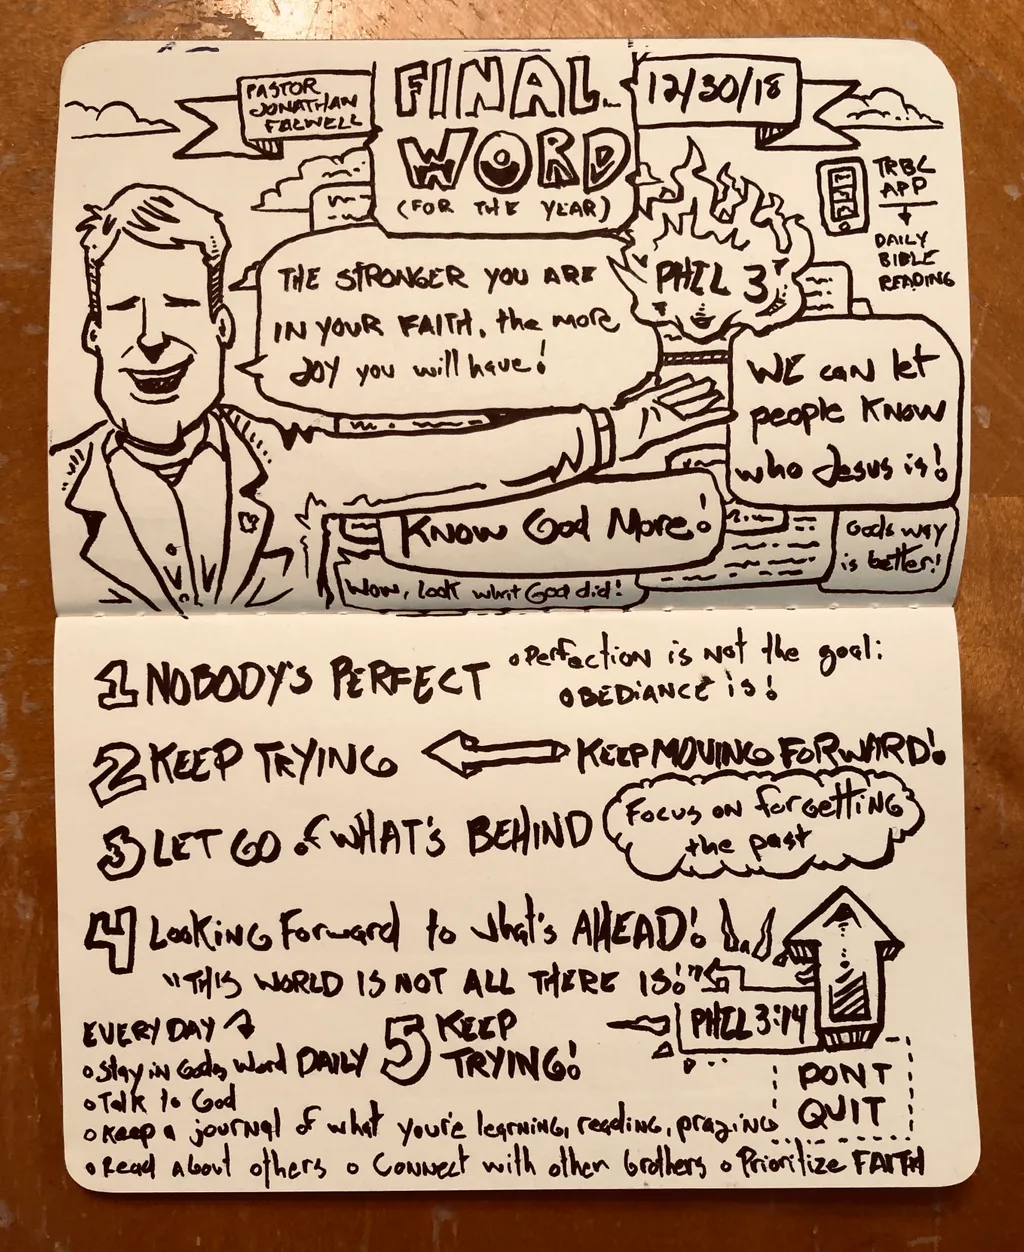 PASTOR
JONATHAN
FALWELL
FINAL
WORD
(FOR THE YEAR)
12/30/18
TRBC
APP
DAILY
BIBLE
READING
PHIL 3
THE STRONGER YOU ARE
IN YOUR FAITH, the more
JOY you will have!
WE can let
people KNOW
who Jesus is!
KNOW GOD MORE!
Gods way
is better!
Wow, look what God did!
1 NOBODY'S PERFECT
Perfection is not the goal:
OBEDIANCE is!
2 KEEP TRYING
KEEP MOVING FORWARD!
3 LET GO of WHAT'S BEHIND
Focus on forgetting
the past
4 Looking Forward to what's AHEAD!
"THIS WORLD IS NOT ALL THERE IS!"
PHIL 3:14
EVERY DAY
• Stay in Gods Word DAILY
• Talk to God
5 KEEP
TRYING!
DONT
QUIT
• Keep a journal of what you're learning, reading, praying
• Read About others • Connect with other brothers • Prioritize FAITH